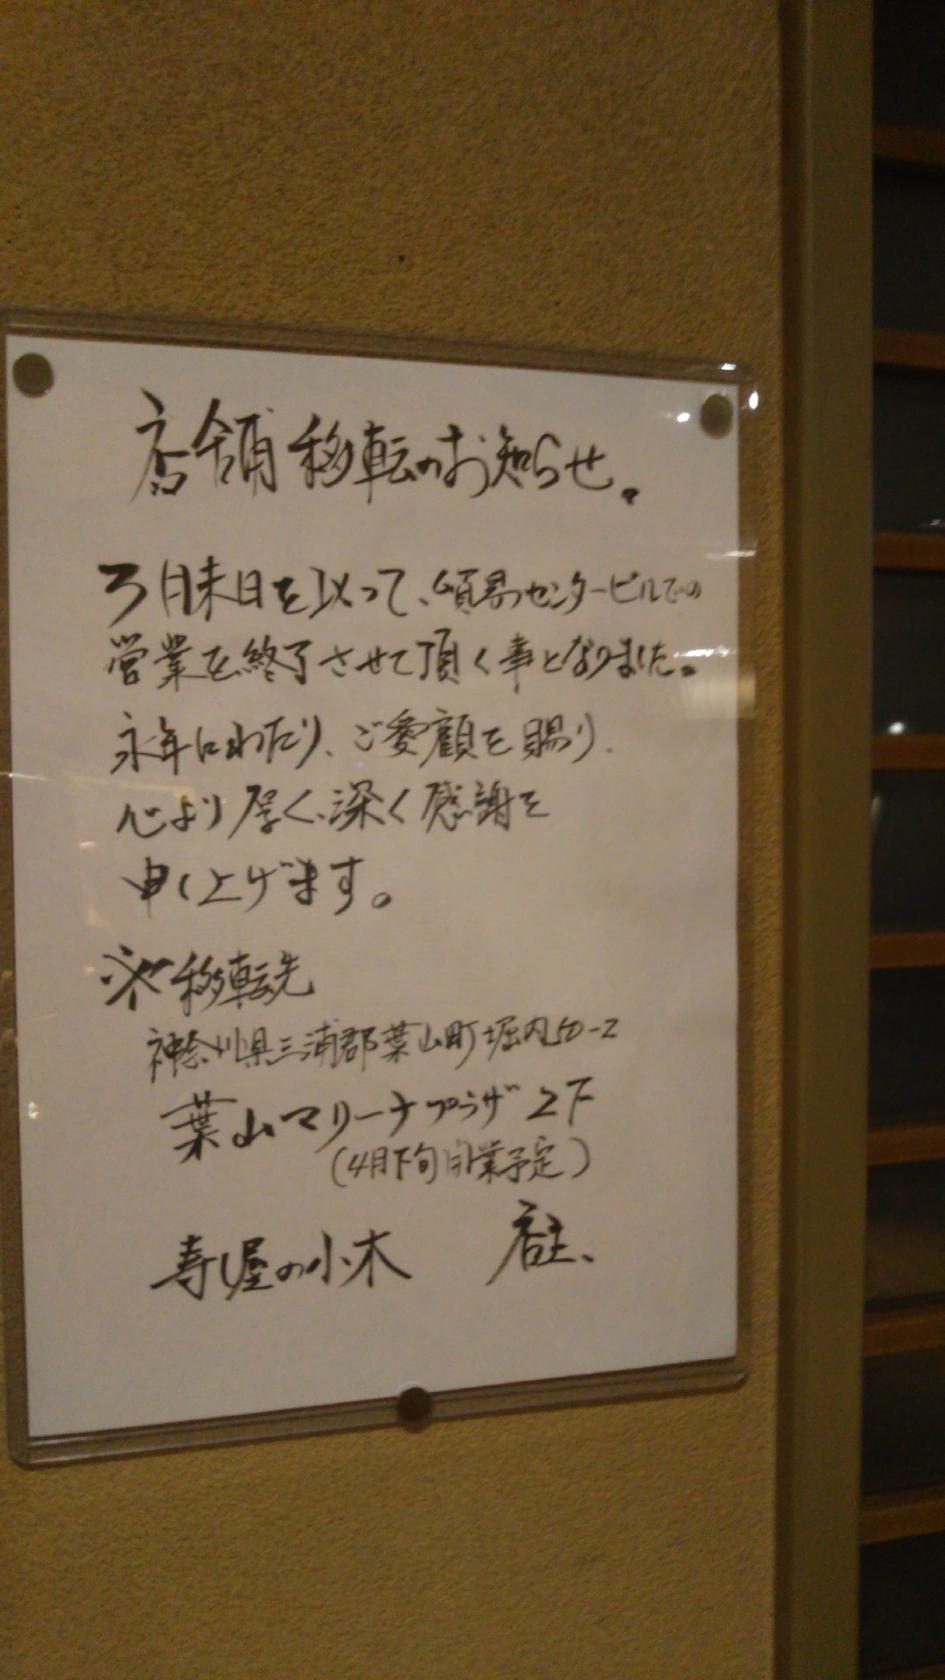 店舗移転のお知らせ。
3月末日を以って、センタービルでの
営業を終了させて頂く事となりました。
永年にわたり、ご愛顧を賜り、
心より厚く、深く感謝を
申し上げます。
※移転先
神奈川県三浦郡葉山町堀内50-2
葉山マリーナプラザ2F
(4月下旬開業予定)
寿し屋の小木 店主、